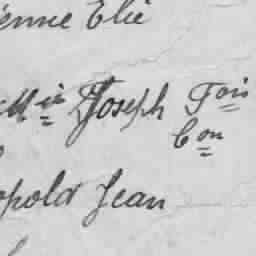 ienne Elie
Mie Joseph Fois
Con
opold Jean